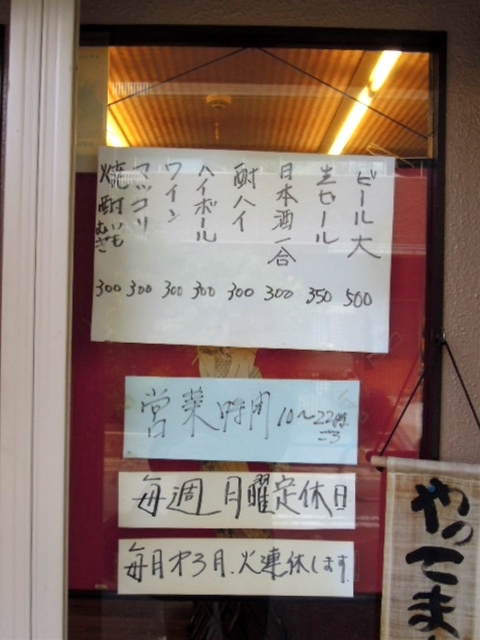 ビール大 500
生ビール 350
日本酒一合 300
酎ハイ 300
ハイボール 300
ワイン 300
マッコリ 300
焼酎いも むぎ 300
営業時間 10〜22時ごろ
毎週月曜定休日
毎月オ3月.火連休します
やってま